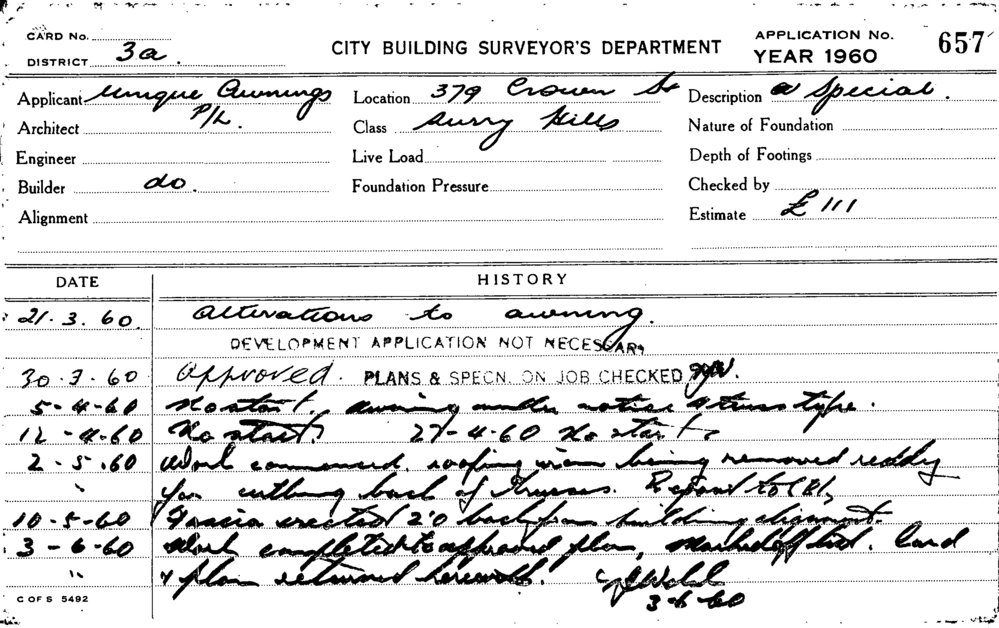 CARD No.
DISTRICT 3a.
CITY BUILDING SURVEYOR'S DEPARTMENT
APPLICATION No. 657
YEAR 1960
Applicant Unique Awnings P/L.
Location 379 Crown St
Description a Special.
Architect
Class Surry Hills
Nature of Foundation
Engineer
Live Load
Depth of Footings
Builder do.
Foundation Pressure
Checked by
Alignment
Estimate £ 111
DATE HISTORY
21.3.60. Alterations to awning.
DEVELOPMENT APPLICATION NOT NECESSARY
30.3.60 Approved. PLANS & SPECN. ON JOB CHECKED
5-4-60 No start. Awning under notice truss type.
12-4-60 No start. 27-4-60 No start.
2-5.60 Work commenced. roofing iron being removed reddy
" for cutting back of trusses. Report to
10-5-60 Fascia erected 2'0 back from building alignment.
3-6-60 Work completed to approved plan, Marked off list. Card
" & plan returned herewith.
3-6-60
C OF S 5492